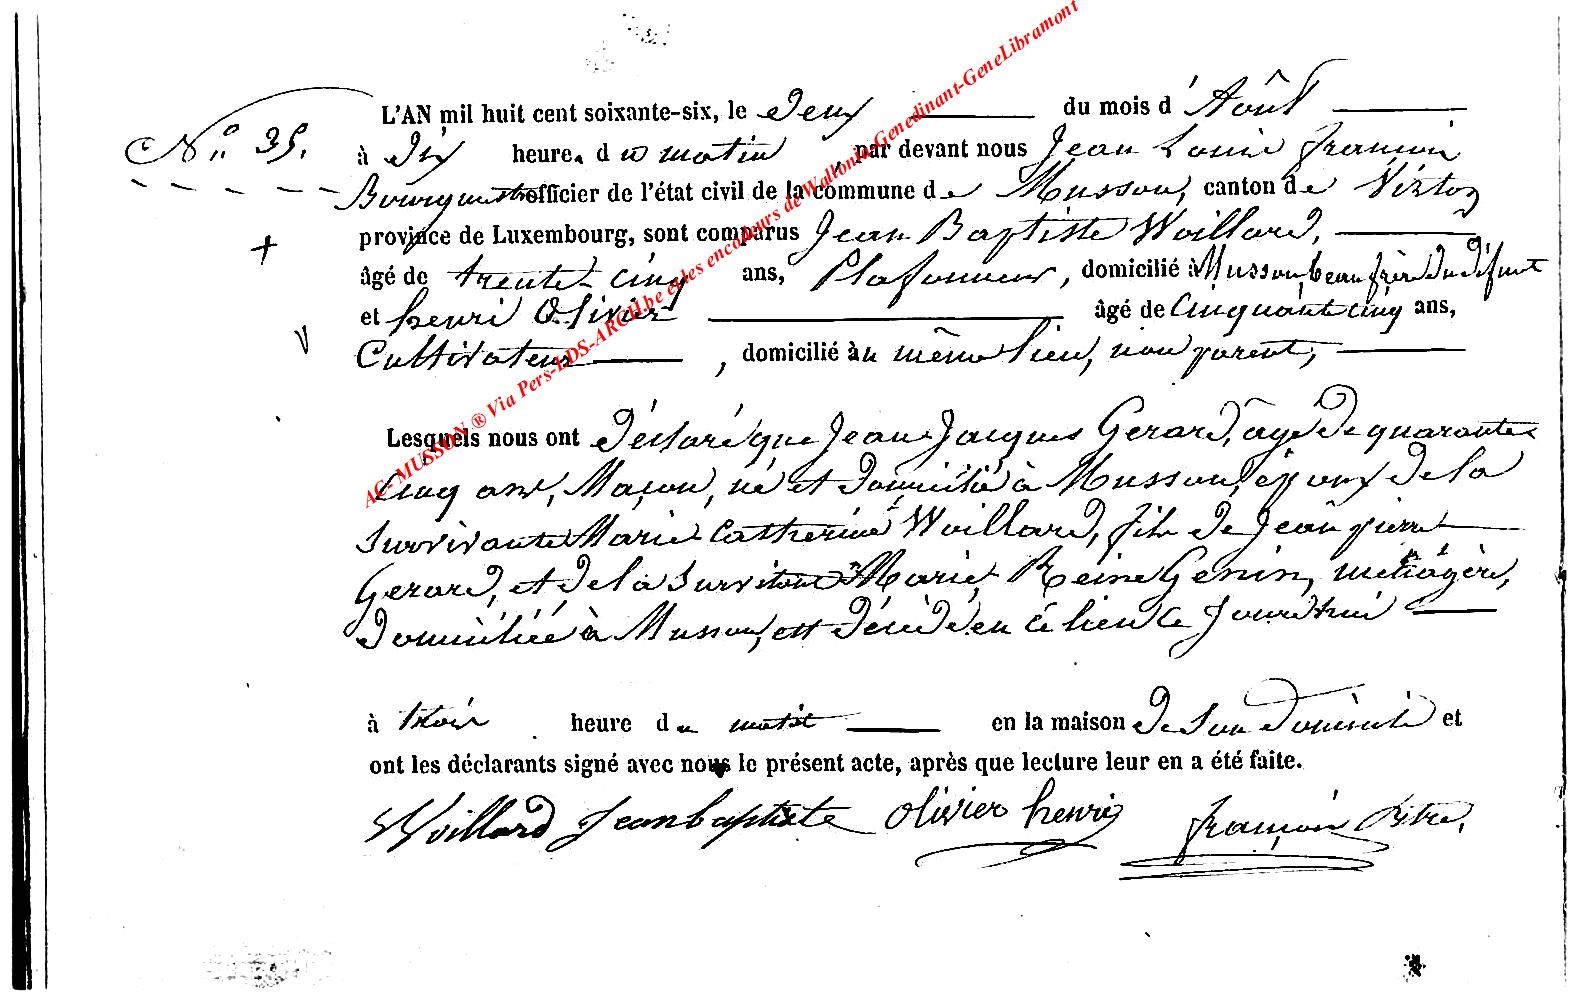 L'AN mil huit cent soixante-six, le Deux du mois d'Août
N° 35. à Dix heure. du matin, par devant nous Jean Louis François
officier de l'état civil de la commune de Musson, canton de Virton
province de Luxembourg, sont comparus Jean Baptiste Woillard,
âgé de trente cinq ans, Plafonneur, domicilié à Musson, beau frère du défunt
et henri Olivier âgé de Cinquante cinq ans,
Cultivateur, domicilié au même lieu, non parent,
Lesquels nous ont déclaré que Jean Jacques Gerard, agé de quarante
Cinq ans, Maçon, né et domicilié à Musson, époux de la
Survivante Marie Catherine Woillard, fils de Jean pierre
Gerard, et de la Survivante Marie Reine Genin, ménagère,
domiciliée à Musson, est décédé en ce lieu ce Jourd'hui
à trois heure du matin en la maison de son domicile et
ont les déclarants signé avec nous le présent acte, après que lecture leur en a été faite.
Woillard Jean baptiste Olivier henri françois
AC- MUSSON ® Via Pers-LDS-ARCH.be et les encodeurs de Wallonia-Genedinant-GeneLibramont